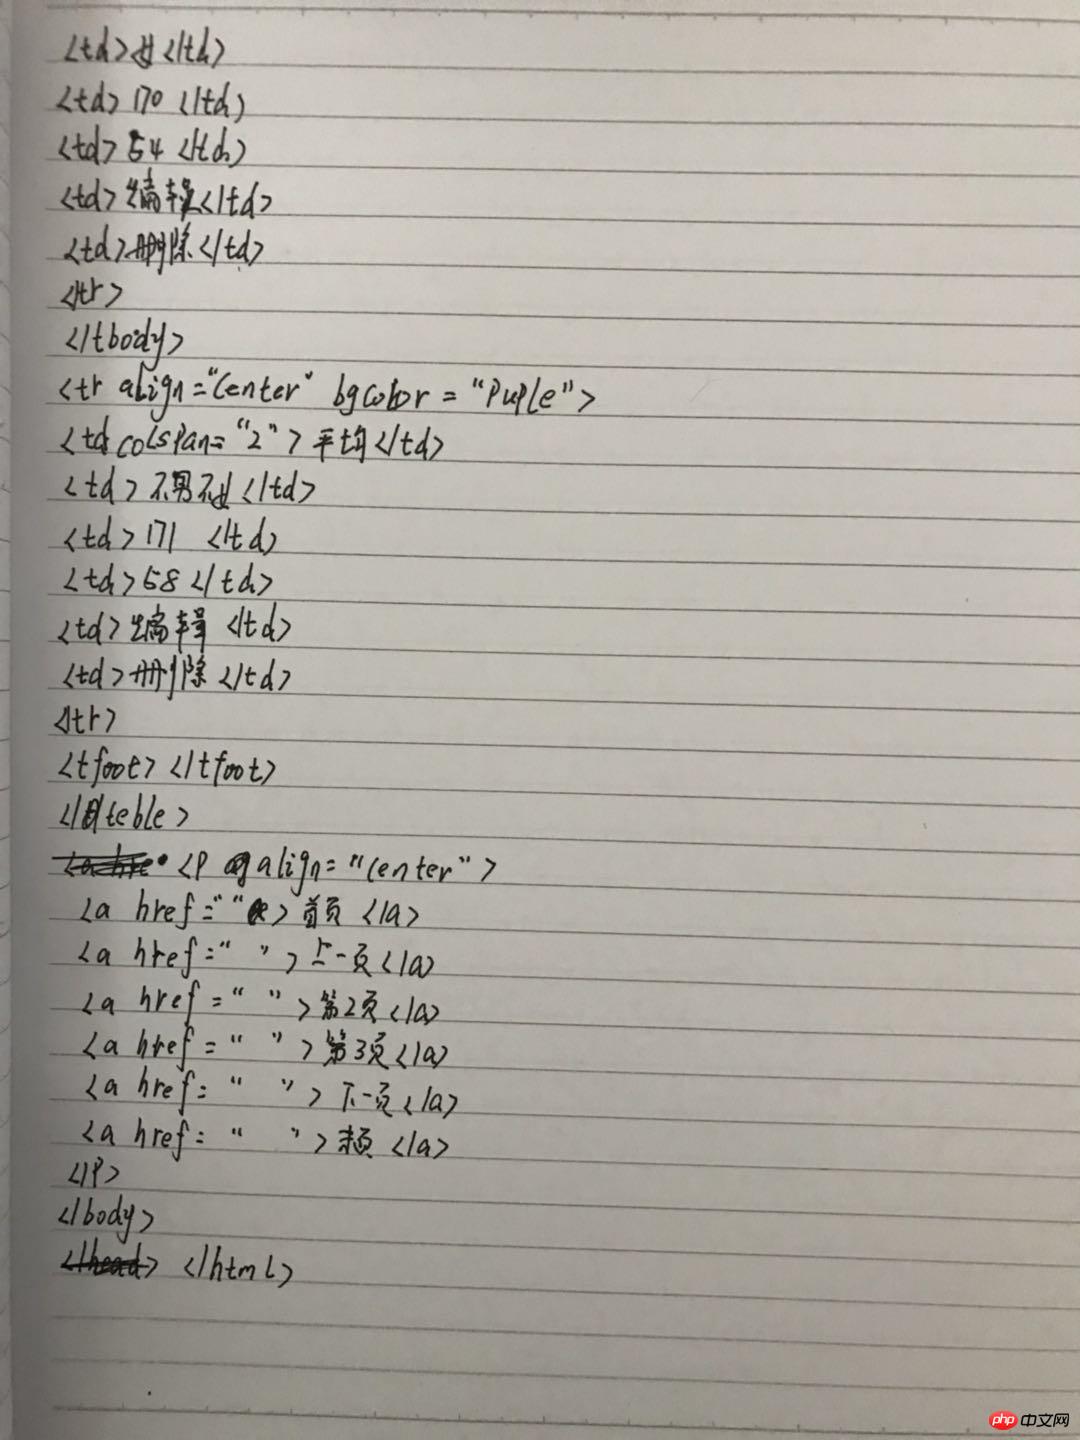 <td>女</td>
<td>170</td>
<td>54</td>
<td>编辑</td>
<td>删除</td>
</tr>
</tbody>
<tr align="Center" bgcolor="Puple">
<td colspan="2">平均</td>
<td>不男不女</td>
<td>171</td>
<td>58</td>
<td>编辑</td>
<td>删除</td>
</tr>
<tfoot></tfoot>
</teble>
<P align="Center">
<a href="">首页</a>
<a href=" ">上一页</a>
<a href=" ">第2页</a>
<a href=" ">第3页</a>
<a href=" ">下一页</a>
<a href=" ">末页</a>
</P>
</body>
</html>
php 中文网